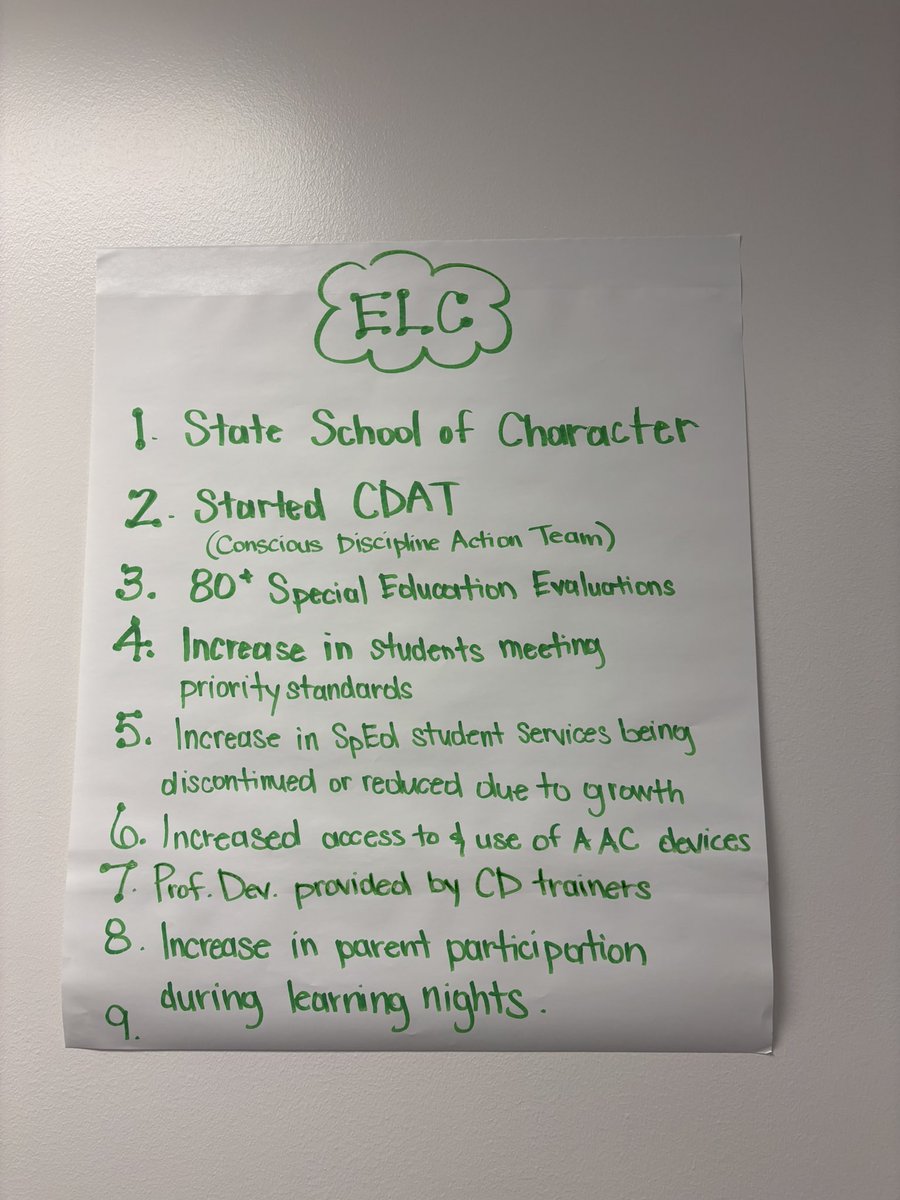 ELC
1. State School of Character
2. Started CDAT
(Conscious Discipline Action Team)
3. 80+ Special Education Evaluations
4. Increase in students meeting
priority standards
5. Increase in SpEd student services being
discontinued or reduced due to growth
6. Increased access to & use of AAC devices
7. Prof. Dev. provided by CD trainers
8. Increase in parent participation
during learning nights.
9.